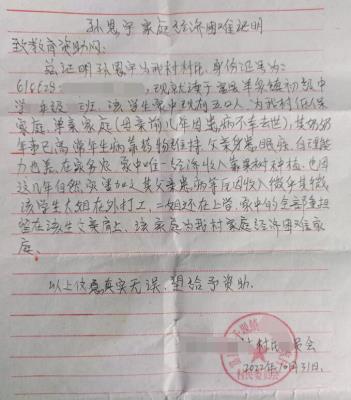 孙思宇家庭经济困难证明
致教育资助网:
兹证明孙思宇为我村村民,身份证号为:
现就读于
初级中
学 年级 班。该学生家中现有五口人,为我村低保
家庭,单亲家庭(母亲前几年因患病不幸去世),其奶奶
年事已高,常年生病靠药物维持,父亲身患眼疾,自理能
力也差,在家务农,家中唯一经济收入苹果树种植,也因
这几年自然灾害加之其父亲患病等原因收入微乎其微
该学生大姐在外打工,二姐还在上学,家中的全部重担
留在该生父亲肩上,该家庭为我村家庭经济困难家
庭。
以上信息真实无误,望给予资助。
村民委员会
2022年10月31日.
村民委员会